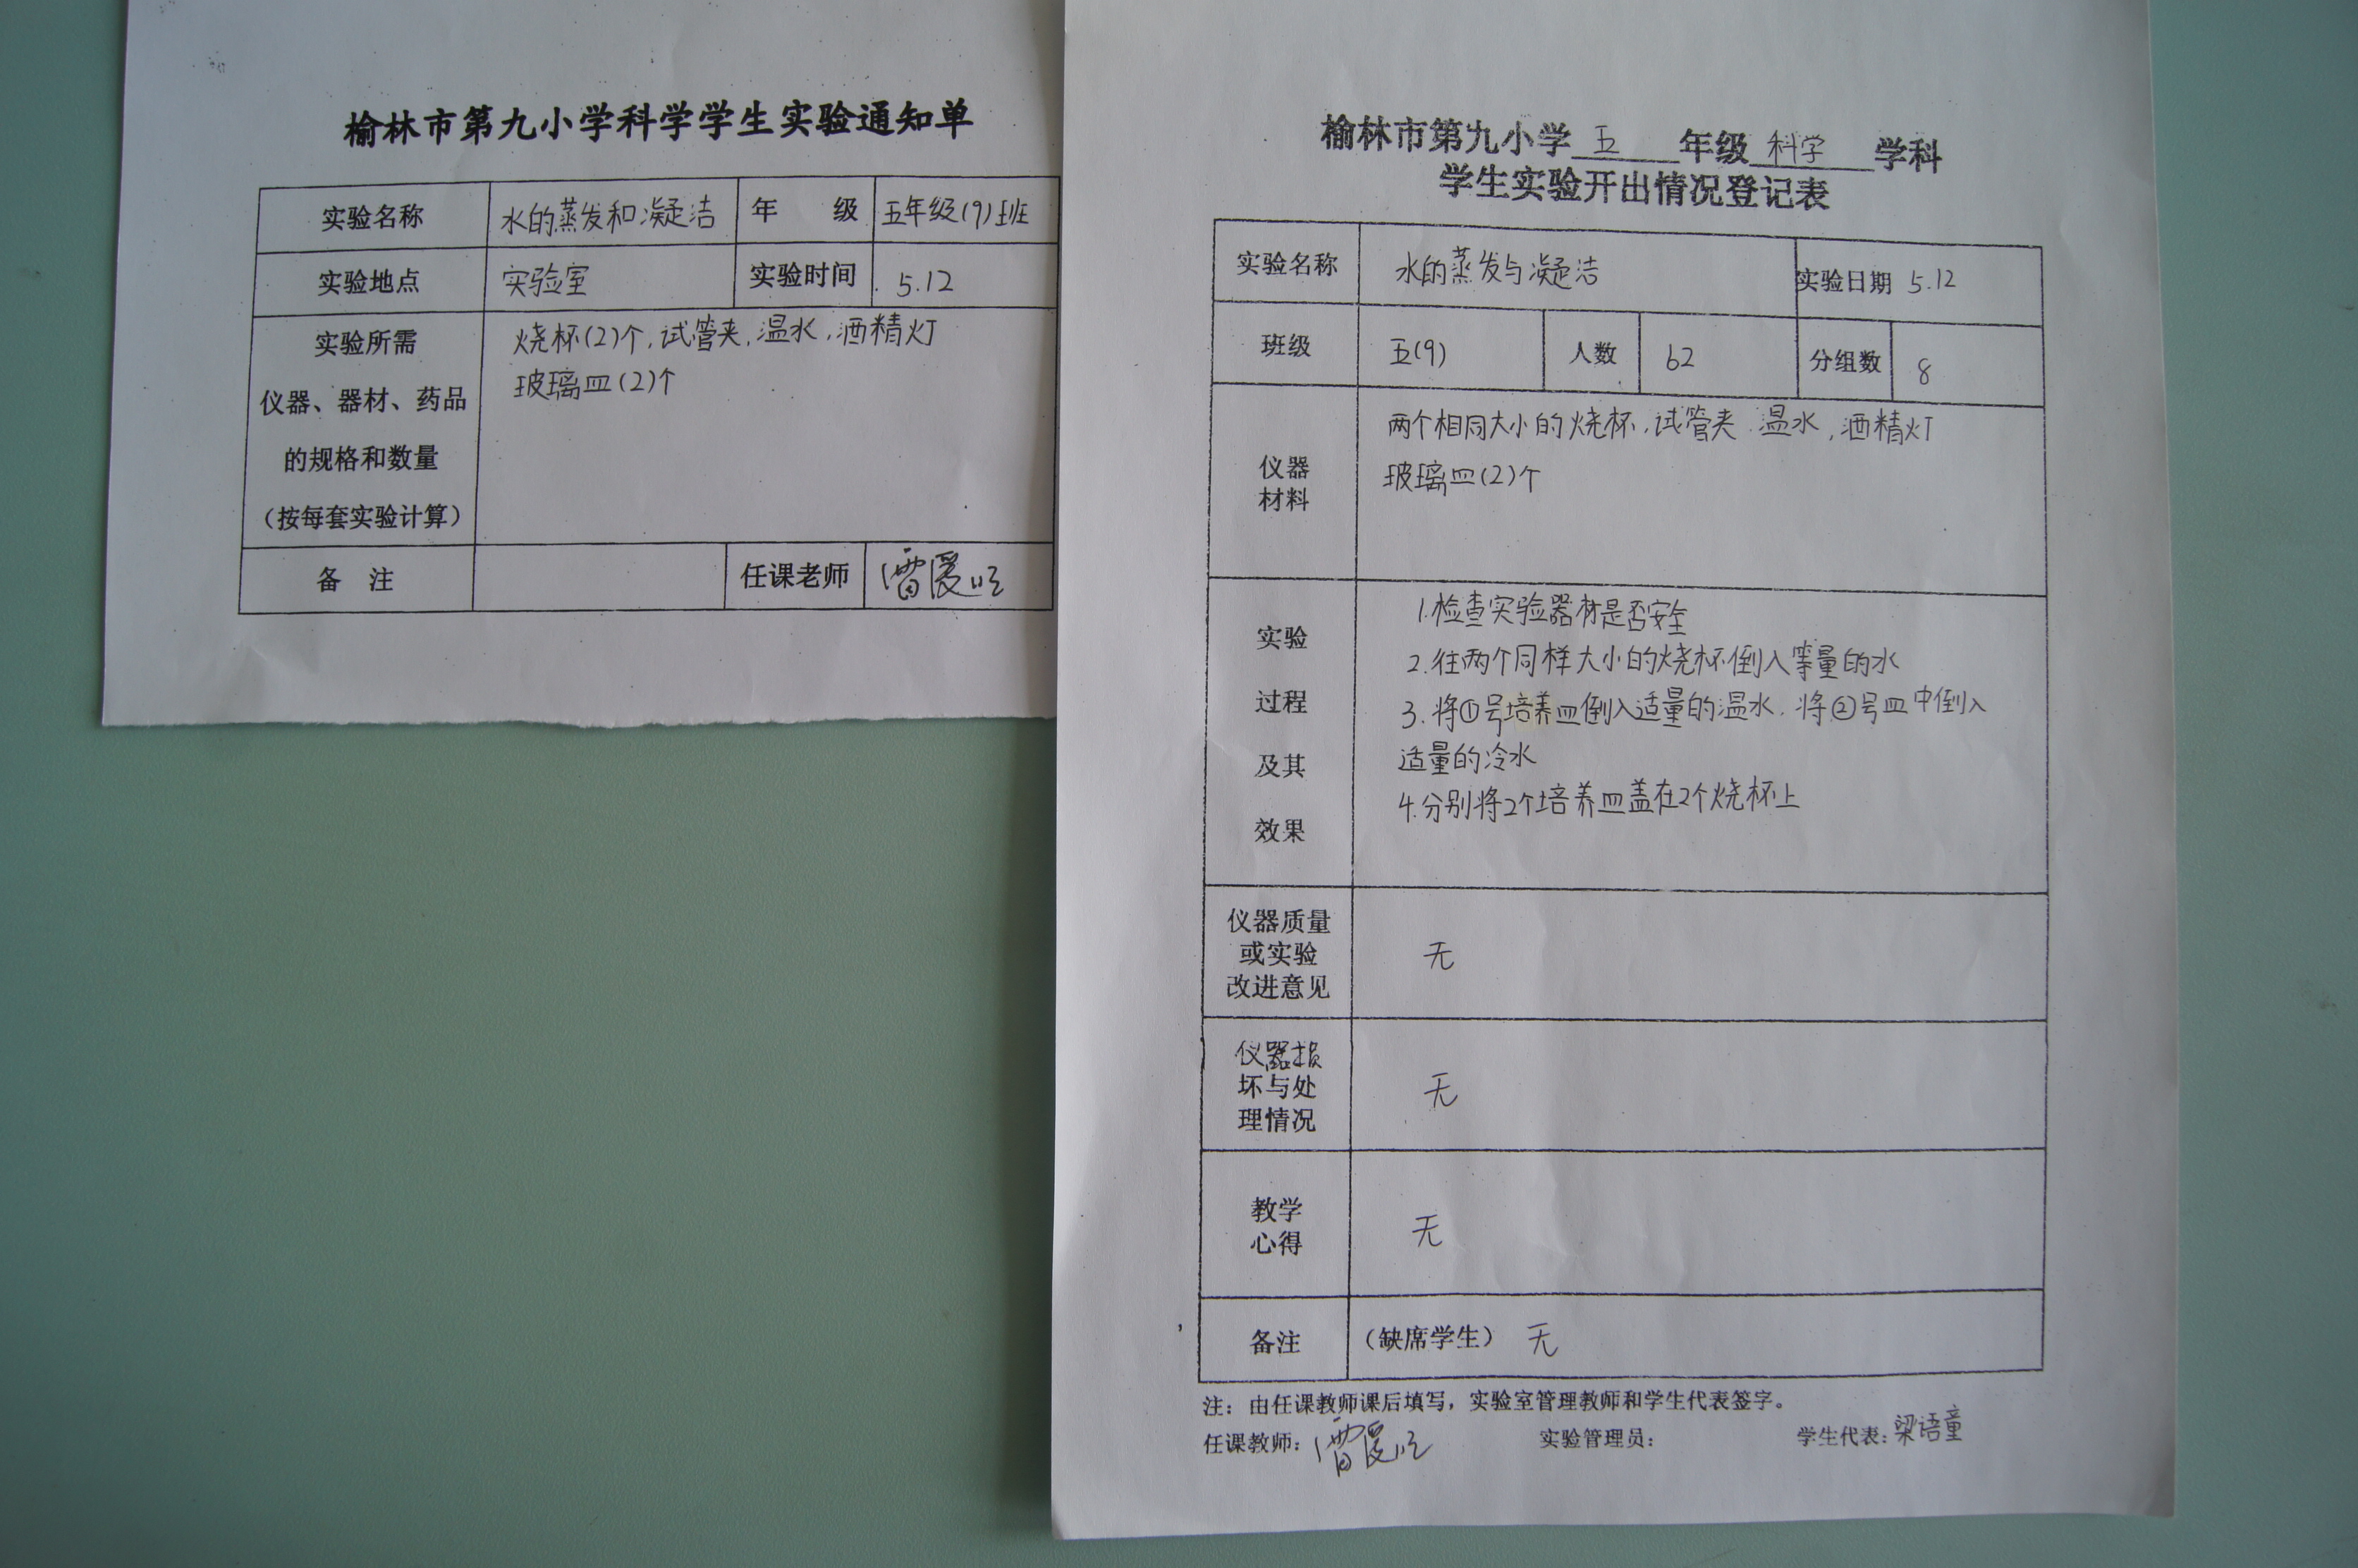 榆林市第九小学科学学生实验通知单
实验名称 水的蒸发和凝洁 年 级 五年级(9)班
实验地点 实验室 实验时间 5.12
实验所需
仪器、器材、药品
的规格和数量
（按每套实验计算）
烧杯(2)个,试管夹,温水,酒精灯
玻璃皿(2)个
备 注 任课老师
榆林市第九小学 五 年级 科学 学科
学生实验开出情况登记表
实验名称 水的蒸发与凝洁 实验日期 5.12
班级 五(9) 人数 62 分组数 8
仪器
材料
两个相同大小的烧杯,试管夹.温水,酒精灯
玻璃皿(2)个
实验
过程
及其
效果
1.检查实验器材是否安全
2.往两个同样大小的烧杯倒入等量的水
3.将①号培养皿倒入适量的温水.将②号皿中倒入
适量的冷水
4.分别将2个培养皿盖在2个烧杯上
仪器质量
或实验
改进意见
无
仪器损
坏与处
理情况
无
教学
心得
无
备注 （缺席学生） 无
注：由任课教师课后填写，实验室管理教师和学生代表签字。
任课教师： 实验管理员： 学生代表：梁语童